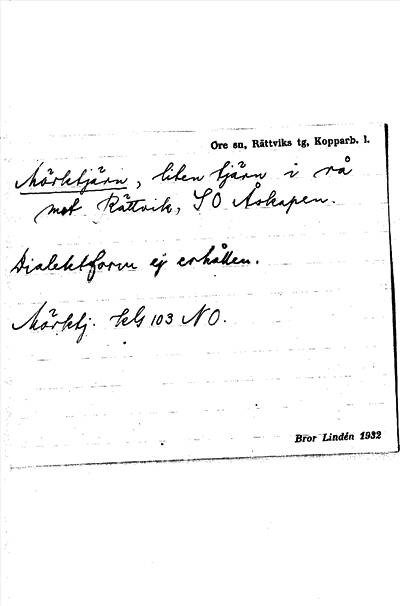 Ore sn, Rättviks tg, Kopparb. l.
Mörktjärn, liten tjärn i rå
mot Rättvik, SO Åskapen.
Dialektform ej erhållen.
Mörktj. kbl 103 NO.
Bror Lindén 1932